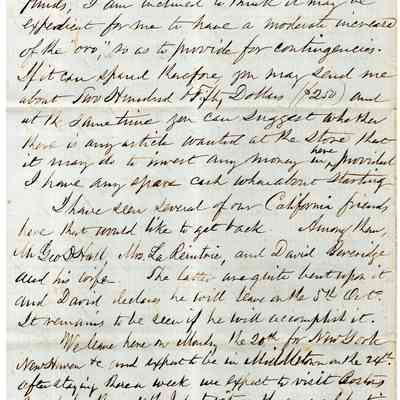 Funds, I am inclined to think it may be
expedient for me to have a moderate increase
of the "oro", so as to provide for contingencies.
If it can spared therefore, you may send me
about Two Hundred & Fifty Dollars ($250) and
at the same time you can suggest whether
there is any article wanted at the store that
it may do to invest any money in, here provided
I have any spare cash when about starting
I have seen several of our California friends
here that would like to get back. Among them,
Mr Geo D Hall, Mrs La Reintrie, and David Beveridge
and his wife. The latter are quite bent upon it
and David declares he will leave on the 5th Oct.
It remains to be seen if he will accomplish it.
We leave here on Monday the 20th for New York
New Haven &c and expect to be in Middletown on the 24th.
After staying there a week we expect to visit Boston